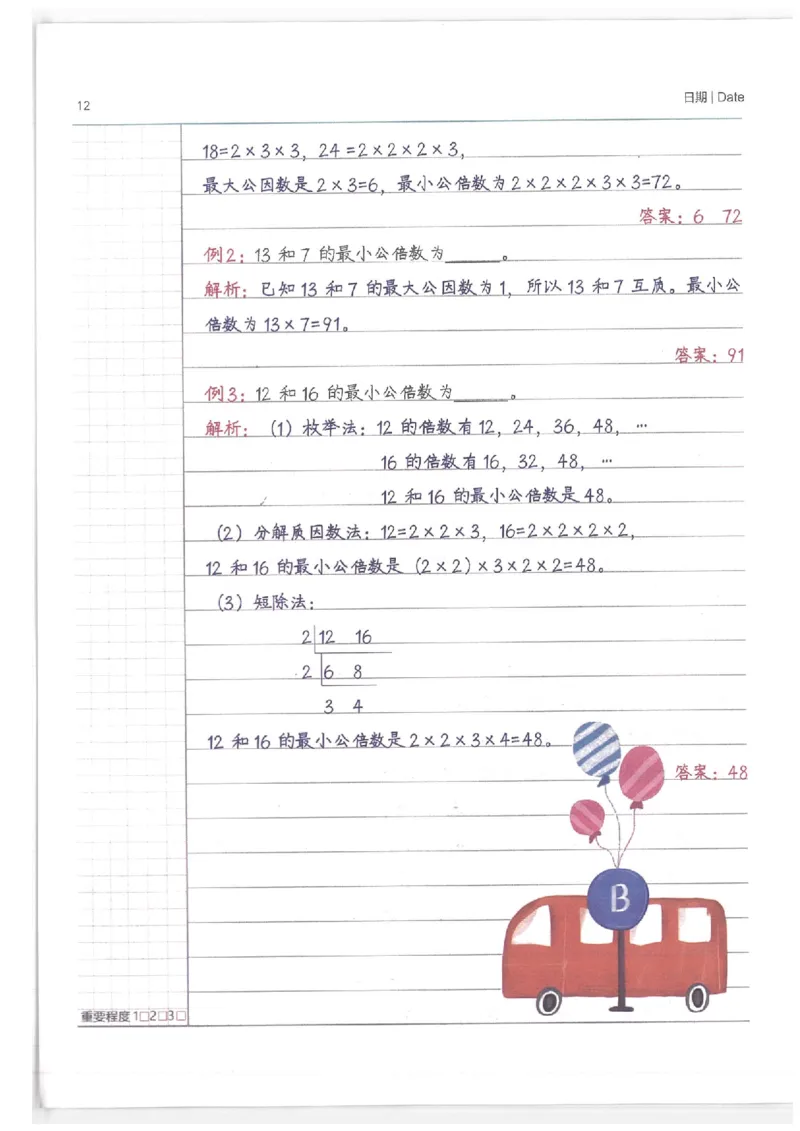 12
日期 | Date
18=2×3×3，24=2×2×2×3，
最大公因数是2×3=6，最小公倍数为2×2×2×3×3=72。
答案：6 72
例2：13和7的最小公倍数为______。
解析：已知13和7的最大公因数为1，所以13和7互质。最小公
倍数为13×7=91。
答案：91
例3：12和16的最小公倍数为______。
解析：（1）枚举法：12的倍数有12，24，36，48，…
16的倍数有16，32，48，…
12和16的最小公倍数是48。
（2）分解质因数法：12=2×2×3，16=2×2×2×2，
12和16的最小公倍数是（2×2）×3×2×2=48。
（3）短除法：
2 12 16
2 6 8
3 4
12和16的最小公倍数是2×2×3×4=48。
答案：48
B
重要程度 1□2□3□